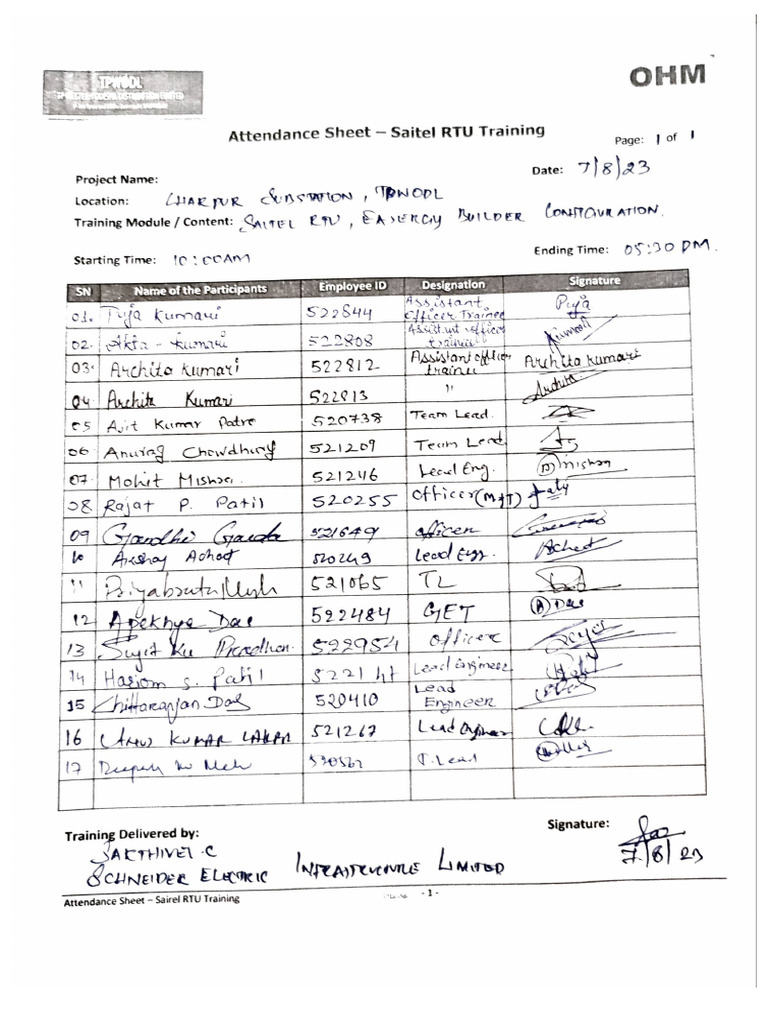 TPWODL
OHM
Attendance Sheet – Saitel RTU Training
Page: 1 of 1
Project Name:
Date: 7/8/23
Location: CHARPUR SUBSTATION, TPWODL
Training Module / Content: SAITEL RTU, EASERGY BUILDER CONFIGURATION.
Starting Time: 10:00AM
Ending Time: 05:30 PM.
SN Name of the Participants Employee ID Designation Signature
01. Puja Kumari 522844 Assistant Officer Trainee Puja
02. Akta - Kumari 522808 Assistant officer trainee Kumari
03. Archita Kumari 522812 Assistant officer trainee Archita Kumari
04. Archita Kumari 522813 " Archita
05 Ajit Kumar Patro 520738 Team Lead.
06 Anurag Chowdhury 521209 Team Lead
07. Mohit Mishra. 521246 Lead Eng. Mishra
08. Rajat P. Patil 520255 Officer (MgT)
09 Gandhi Ganda 521649 officer
10 Akshay Achat 520249 Lead Engr. Achat
11 Priyabrata 521065 TL
12 Apekhya Das 522484 GET A Das
13 Sujit Ku Pradhan. 522954 Officer
14 Hariom S. Patil 5221 Lead Engineer
15 Chittaranjan Das 520410 Lead Engineer
16 KUMAR LAKRA 521267 Lead Engineer
17 Deepak 530562 T. Lead
Training Delivered by:
Signature:
SAKTHIVEL C
7/8/23
SCHNEIDER ELECTRIC INFRASTRUCTURE LIMITED
Attendance Sheet – Sairel RTU Training
- 1 -